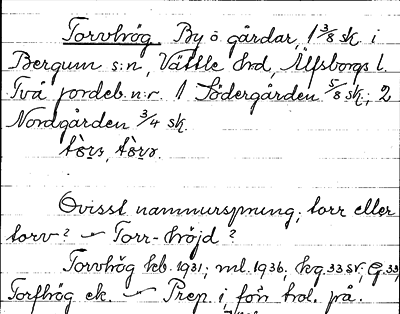 Torvhög. By o gårdar, 1 3/8 sk. i
Bergum s:n, Vättle hd, Älfsborgs l.
Två jordeb.n:r. 1 Södergården 5/8 sk.; 2
Nordgården 3/4 sk.
Ovisst namnursprung; torr eller
torv? – Torr-höjd?
Torvhög kb. 1931; ml. 1936;
Torfhög ek. – Prep. i, på.